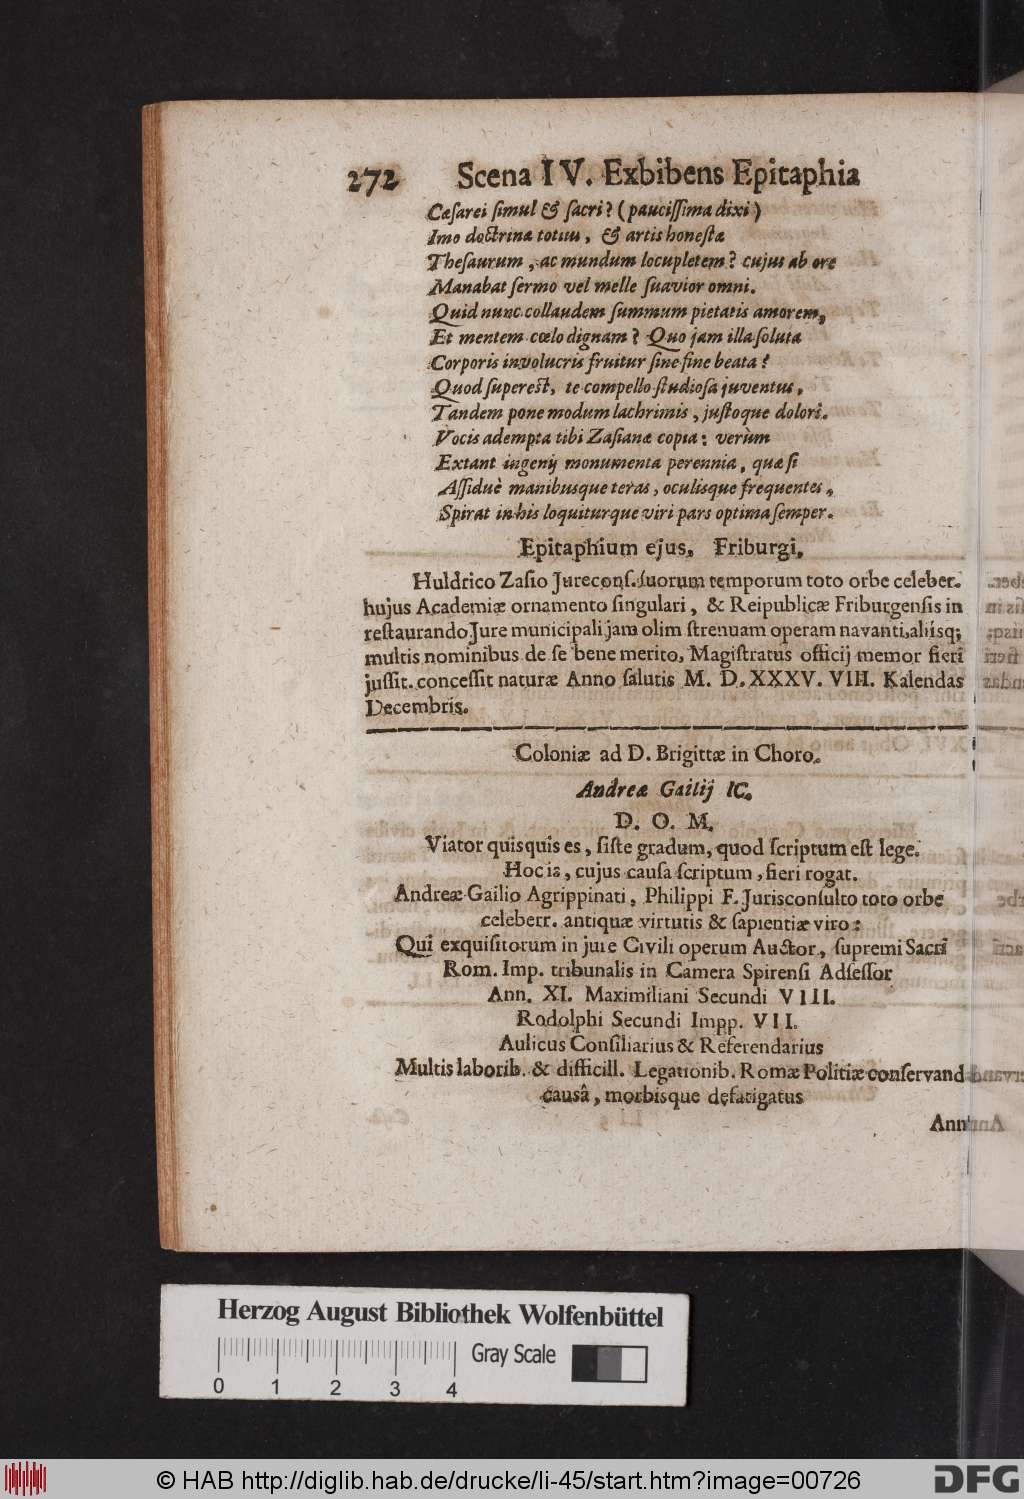 272 Scena IV. Exbibens Epitaphia
Cæsarei simul & sacri? (paucissima dixi)
Imo doctrinæ totius, & artis honestæ
Thesaurum, ac mundum locupletem? cujus ab ore
Manabat sermo vel melle suavior omni.
Quid nunc collaudem summum pietatis amorem,
Et mentem cœlo dignam? Quo jam illa soluta
Corporis involucris fruitur sine fine beata?
Quod superest, te compello studiosa juventus,
Tandem pone modum lachrimis, justoque dolori.
Vocis adempta tibi Zasianæ copia: verùm
Extant ingenij monumenta perennia, quæ si
Assiduè manibusque teras, oculisque frequentes,
Spirat in his loquiturque viri pars optima semper.
Epitaphium ejus, Friburgi.
Huldrico Zasio Jurecons. suorum temporum toto orbe celeber.
hujus Academiæ ornamento singulari, & Reipublicæ Friburgensis in
restaurando Jure municipali jam olim strenuam operam navanti, aliisq;
multis nominibus de se bene merito, Magistratus officij memor fieri
jussit. concessit naturæ Anno salutis M. D. XXXV. VIII. Kalendas
Decembris.
Coloniæ ad D. Brigittæ in Choro.
Andreæ Gailij IC.
D. O. M.
Viator quisquis es, siste gradum, quod scriptum est lege.
Hoc is, cujus causa scriptum, fieri rogat.
Andreæ Gailio Agrippinati, Philippi F. Jurisconsulto toto orbe
celeberr. antiquæ virtutis & sapientiæ viro:
Qui exquisitorum in jure Civili operum Auctor, supremi Sacri
Rom. Imp. tribunalis in Camera Spirensi Adsessor
Ann. XI. Maximiliani Secundi VIII.
Rodolphi Secundi Impp. VII.
Aulicus Consiliarius & Referendarius
Multis laborib. & difficill. Legationib. Romæ Politiæ conservand
causâ, morbisque defatigatus
Ann
Herzog August Bibliothek Wolfenbüttel
Gray Scale
0 1 2 3 4
© HAB http://diglib.hab.de/drucke/li-45/start.htm?image=00726
DFG